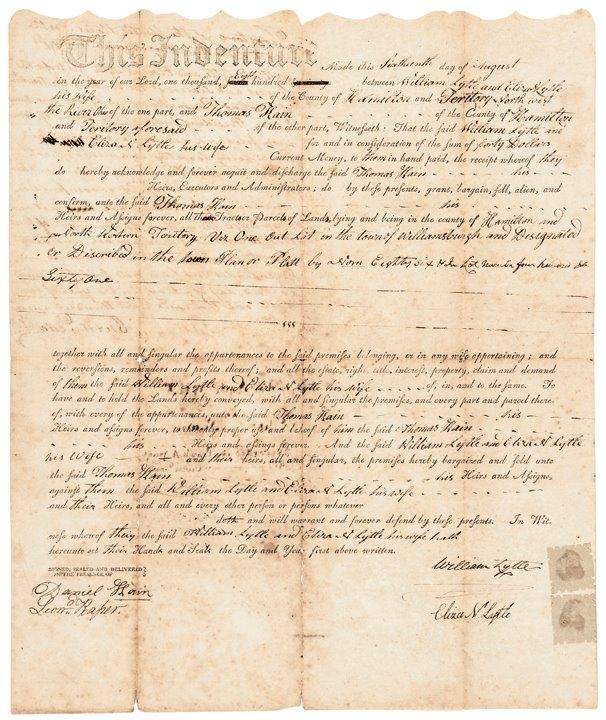 This Indenture Made this Sixteenth day of August
in the year of our Lord, one thousand, Eight hundred between William Lytle and Eliza N Lytle
his wife of the County of Hamilton and Territory North west
the River Ohio of the one part, and Thomas Kain of the County of Hamilton
and Territory aforesaid of the other part, Witnesseth: That the said William Lytle and
Eliza N Lytle his wife for and in consideration of the sum of forty Dollars
Current Money, to them in hand paid, the receipt whereof they
do hereby acknowledge and forever acquit and discharge the said Thomas Kain his
Heirs, Executors and Administrators; do by these presents, grant, bargain, sell, alien, and
confirm, unto the said Thomas Kain his
Heirs and Assigns forever, all Tract or Parcels of Lands, lying and being in the county of Hamilton and
North Western Teritory Viz One Out Lot in the town of Williamsburgh and Designated
or Discribed in the town Plan or Platt by Nom Eighty Six & In Lot Number four hundred &
Sixty One
together with all and singular the appurtenances to the said premises belonging, or in any wise appertaining; and
the reversions, remainders and profits thereof; and all the estate, right, title, interest, property, claim and demand
of them the said William Lytle and Eliza N Lytle his wife of, in, and to the same. To
have and to hold the Lands hereby conveyed, with all and singular the premises, and every part and parcel there-
of, with every of the appurtenances, unto the said Thomas Kain his
Heirs and assigns forever, to the only proper use and behoof of him the said Thomas Kain
his Heirs and assigns forever. And the said William Lytle and Eliza N Lytle
his Wife and their heirs, all and singular, the premises hereby bargained and sold unto
the said Thomas Kain his Heirs and Assigns,
against them the said William Lytle and Eliza N Lytle his wife
and their Heirs, and all and every other person or persons whatever
doth and will warrant and forever defend by these presents. In Wit-
ness whereof they the said William Lytle and Eliza N Lytle his wife hath
hereunto set their Hands and Seals the Day and Year first above written.
SIGNED, SEALED AND DELIVERED
IN THE PRESENCE OF
William Lytle
Daniel Kain
Leond Raper
Eliza N Lytle